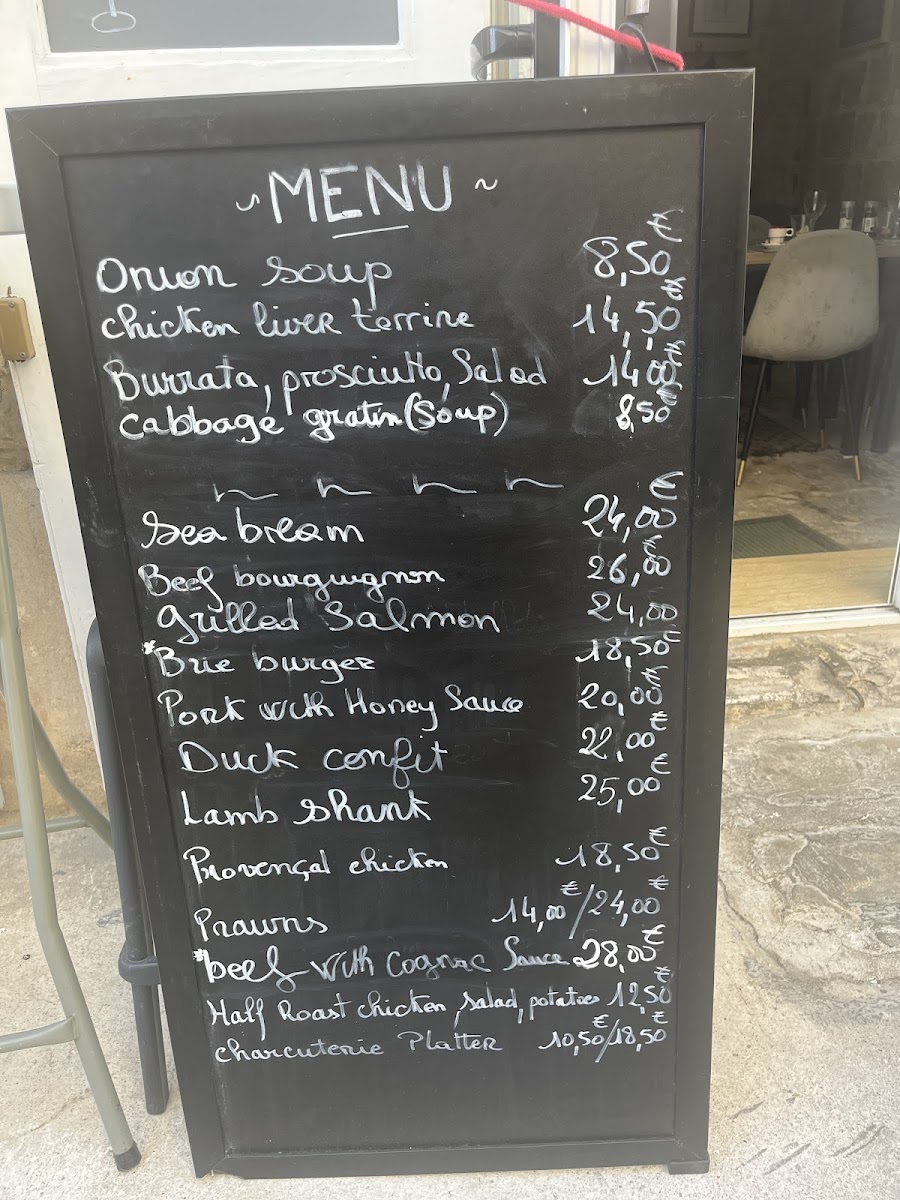 ~ MENU ~
Onion soup 8,50€
chicken liver terrine 14,50€
Burrata, prosciutto, Salad 14,00€
cabbage gratin (soup) 8,50€
Sea bream 24,00€
Beef bourguignon 26,00€
Grilled Salmon 24,00
*Brie burger 18,50€
Pork with Honey Sauce 20,00€
Duck confit 22,00€
Lamb shank 25,00€
Provençal chicken 18,50€
Prawns 14,00€/24,00€
*beef with Cognac Sauce 28,00€
Half Roast chicken, salad, potatoes 12,50€
charcuterie Platter 10,50€/18,50€